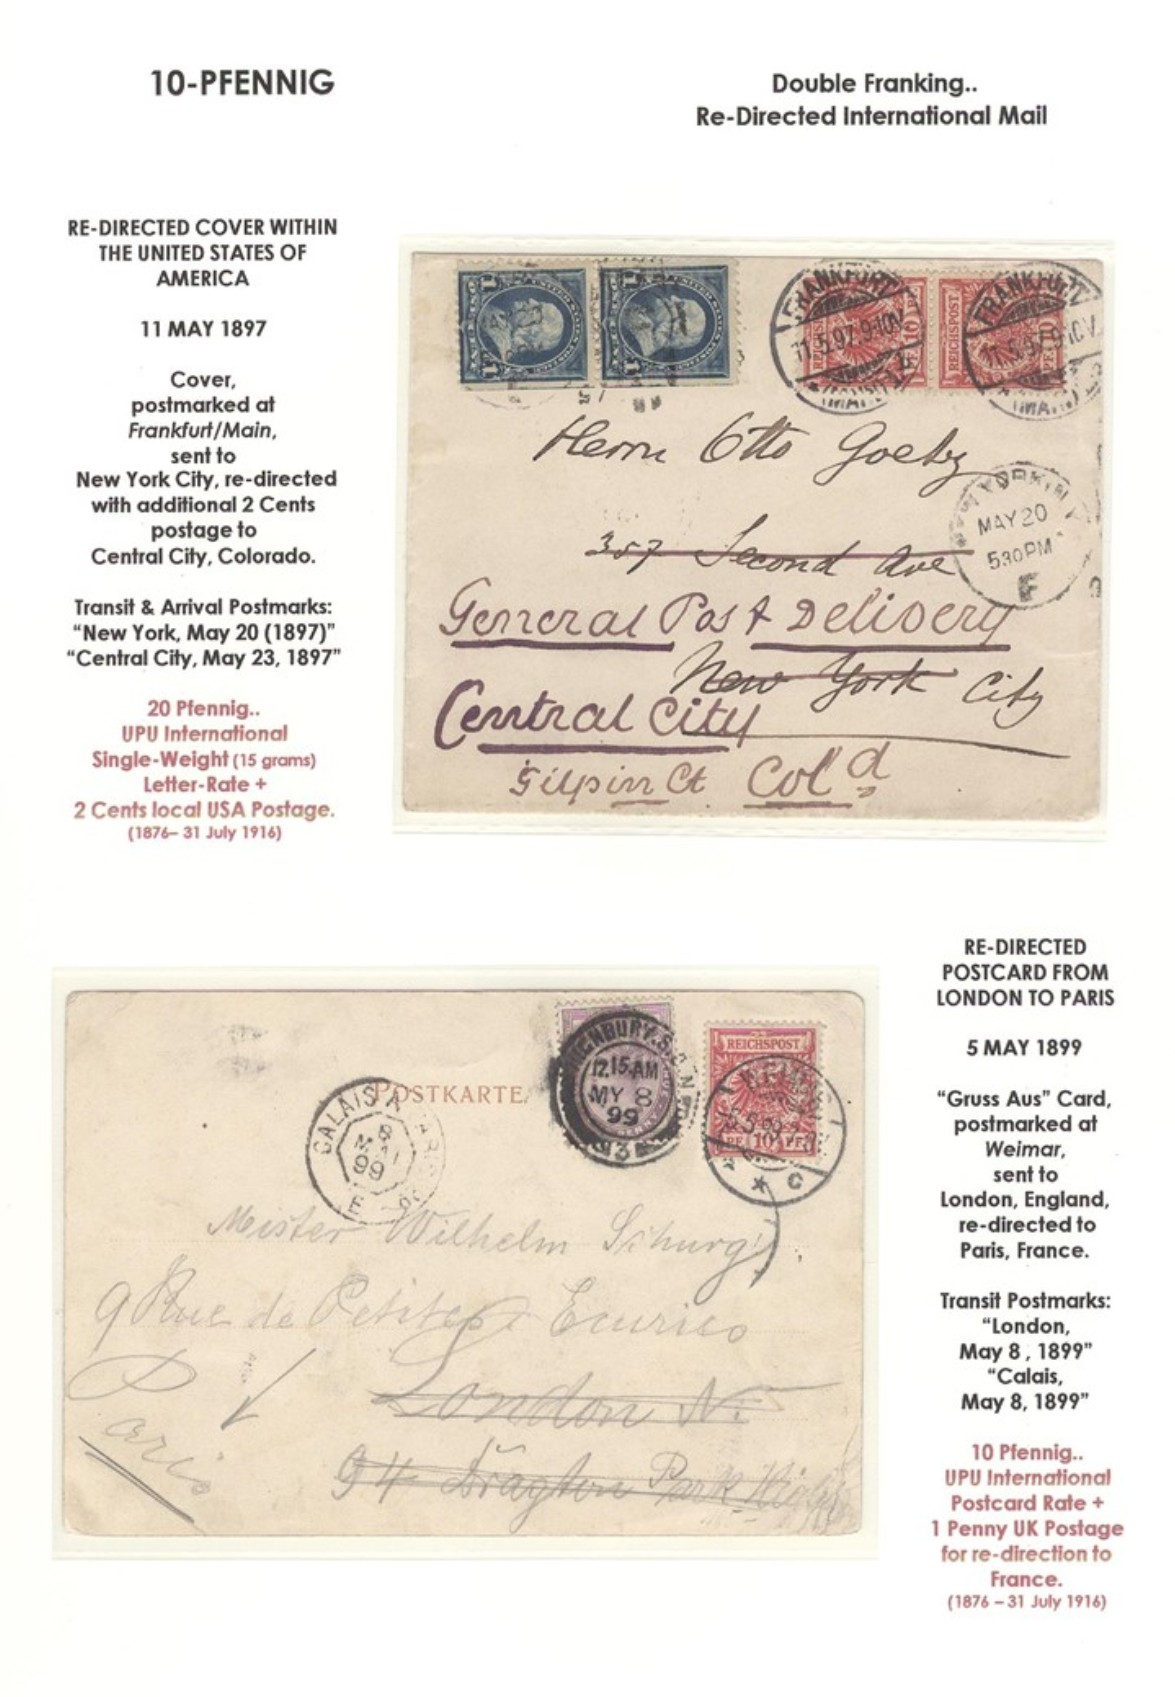 10-PFENNIG
Double Franking..
Re-Directed International Mail
RE-DIRECTED COVER WITHIN
THE UNITED STATES OF
AMERICA
11 MAY 1897
Cover,
postmarked at
Frankfurt/Main,
sent to
New York City, re-directed
with additional 2 Cents
postage to
Central City, Colorado.
Transit & Arrival Postmarks:
“New York, May 20 (1897)”
“Central City, May 23, 1897”
20 Pfennig..
UPU International
Single-Weight (15 grams)
Letter-Rate +
2 Cents local USA Postage.
(1876– 31 July 1916)
1 1
FRANKFURT
11.5.97.9-10V.
(MAIN)
REICHSPOST
10
FRANKFURT
11.5.97.9-10V.
(MAIN)
REICHSPOST
Herrn Otto Goetz
357 Second Ave
General Post Delivery
New York City
Central City
Gilpin Ct Col d
YORK, N
MAY 20
530 PM
F
RE-DIRECTED
POSTCARD FROM
LONDON TO PARIS
5 MAY 1899
“Gruss Aus” Card,
postmarked at
Weimar,
sent to
London, England,
re-directed to
Paris, France.
Transit Postmarks:
“London,
May 8 , 1899”
“Calais,
May 8, 1899”
10 Pfennig..
UPU International
Postcard Rate +
1 Penny UK Postage
for re-direction to
France.
(1876 – 31 July 1916)
POSTKARTE.
CALAIS A
8
MAI
99
E
HIGHBURY. S.
12.15.AM
MY 8
99
N
REICHSPOST
PF 10 PF
C
Mister Wilhelm
9 Rue de Petites Ecuries
Paris
London N.
94 Drayton Park